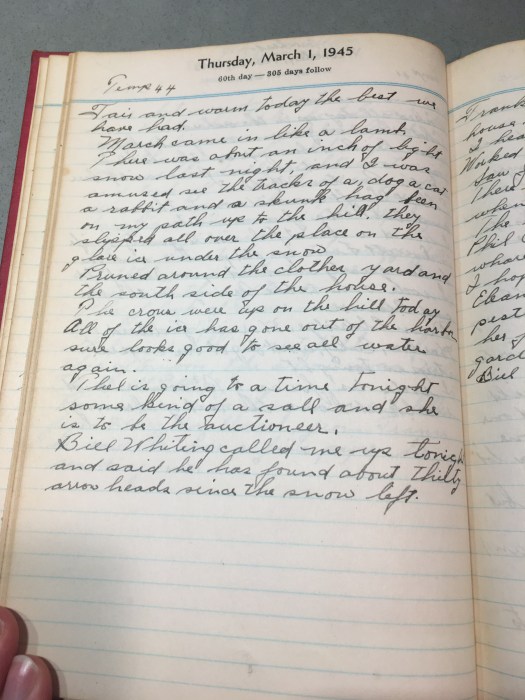 Thursday, March 1, 1945
60th day — 305 days follow
Temp 44
Fair and warm today the best we
have had.
March came in like a lamb.
There was about an inch of light
snow last night, and I was
amused see the tracks of a dog a cat
a rabbit and a skunk had been
on my path up to the hill. they
slipped all over the place on the
glare ice under the snow
Pruned around the clother yard and
the south side of the house.
The crows were up on the hill today
All of the ice has gone out of the harbor
sure looks good to see all water
again.
Phel is going to a time tonight
some kind of a sall and she
is to be the auctioneer.
Bill Whiting called me up tonight
and said he has found about thirty
arrow heads since the snow left.
Frank
house
I hea
Worked
Saw
There
when
The
Phil
where
I hop
Elean
pest
her
gard
Bill